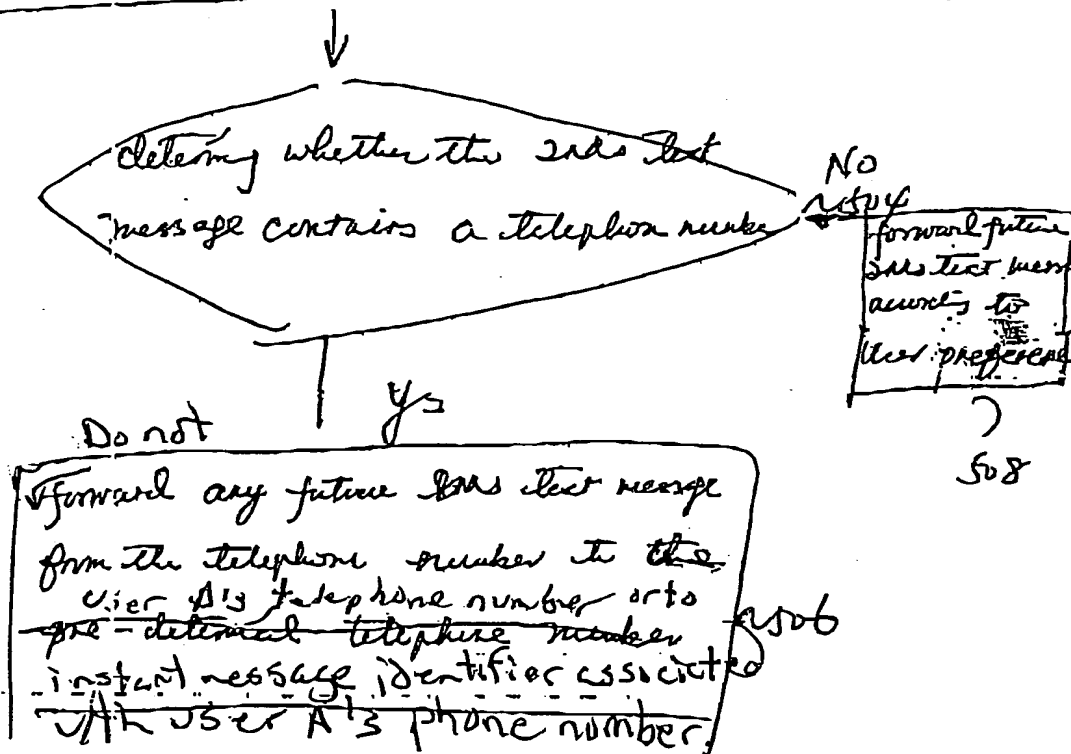 determing whether the SMS text
message contains a telephon number
No
504
forward future
SMS text mess
according to
User preferen
508
Yes
Do not
forward any future SMS text message
from the telephone number to the
user A's telephone number or to
pre-determined telephone number
instant message identifier associated
with user A's phone number.
506